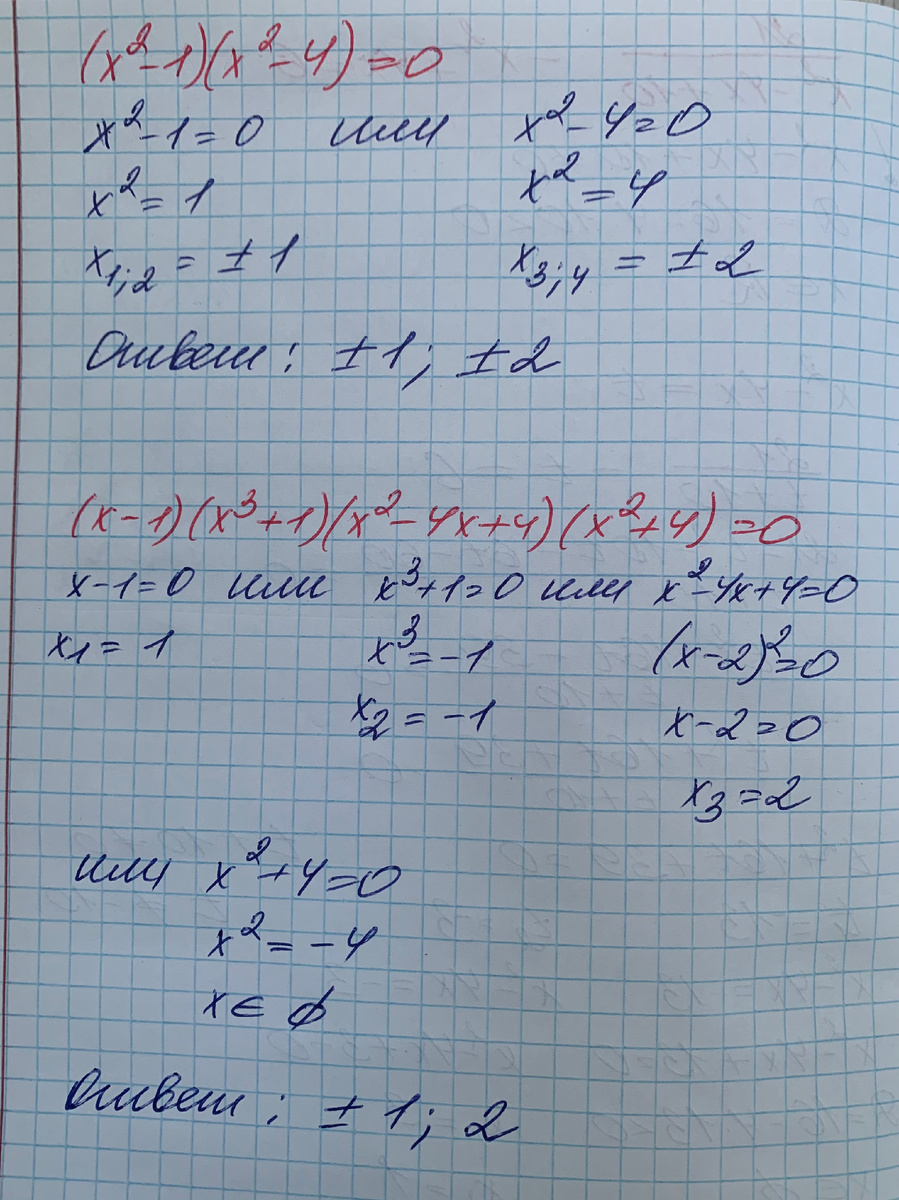 (x²-1)(x²-4)=0
x²-1=0 или x²-4=0
x²=1 x²=4
x₁;₂ = ±1 x₃;₄ = ±2
Ответ: ±1; ±2
(x-1)(x³+1)(x²-4x+4)(x²+4)=0
x-1=0 или x³+1=0 или x²-4x+4=0
x₁=1 x³=-1 (x-2)²=0
x₂=-1 x-2=0
x₃=2
или x²+4=0
x²=-4
x∈ϕ
Ответ: ±1; 2